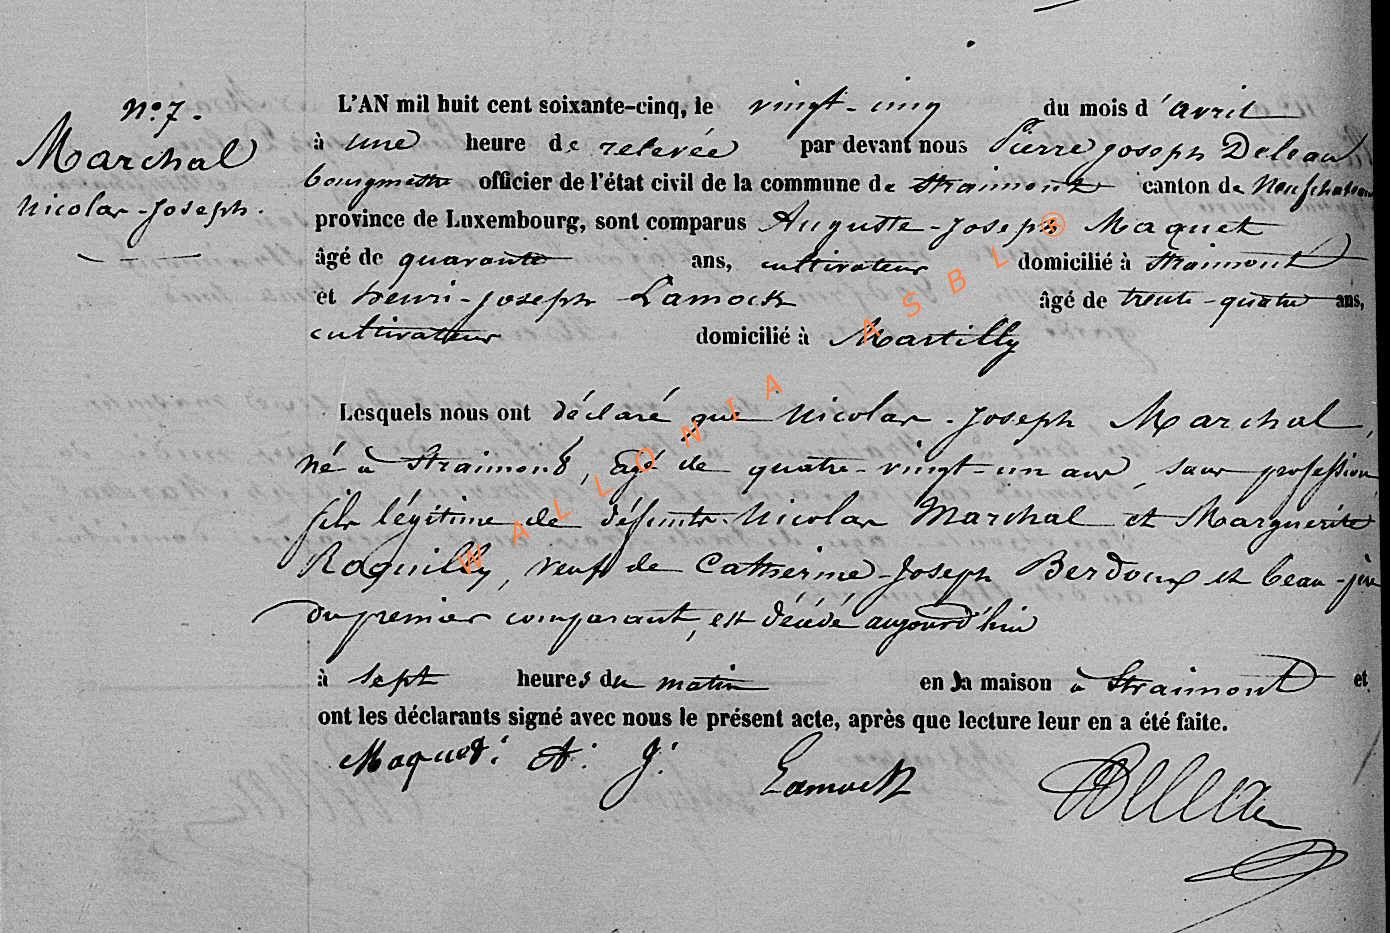 N.° 7.
Marchal
Nicolas-Joseph.
L'AN mil huit cent soixante-cinq, le vingt-cinq du mois d'avril
à une heure de relevée par devant nous Pierre Joseph Deleau
bourgmestre officier de l'état civil de la commune de Straimont canton de Neufchateau
province de Luxembourg, sont comparus Auguste-Joseph Maquet
âgé de quarante ans, cultivateur domicilié à Straimont
et Henri-Joseph Lamock âgé de trente-quatre ans,
cultivateur domicilié à Martilly
Lesquels nous ont déclaré que Nicolas-Joseph Marchal,
né à Straimont, âgé de quatre-vingt-un ans, sans profession
fils légitime de défunts Nicolas Marchal et Marguerite
Roquilly, veuf de Catherine-Joseph Berdoux et beau-père
du premier comparant, est décédé aujourd'hui
à sept heures du matin en sa maison à Straimont et
ont les déclarants signé avec nous le présent acte, après que lecture leur en a été faite.
Maquet. A. J. Lamock Deleau
WALLONIA ASBL ®